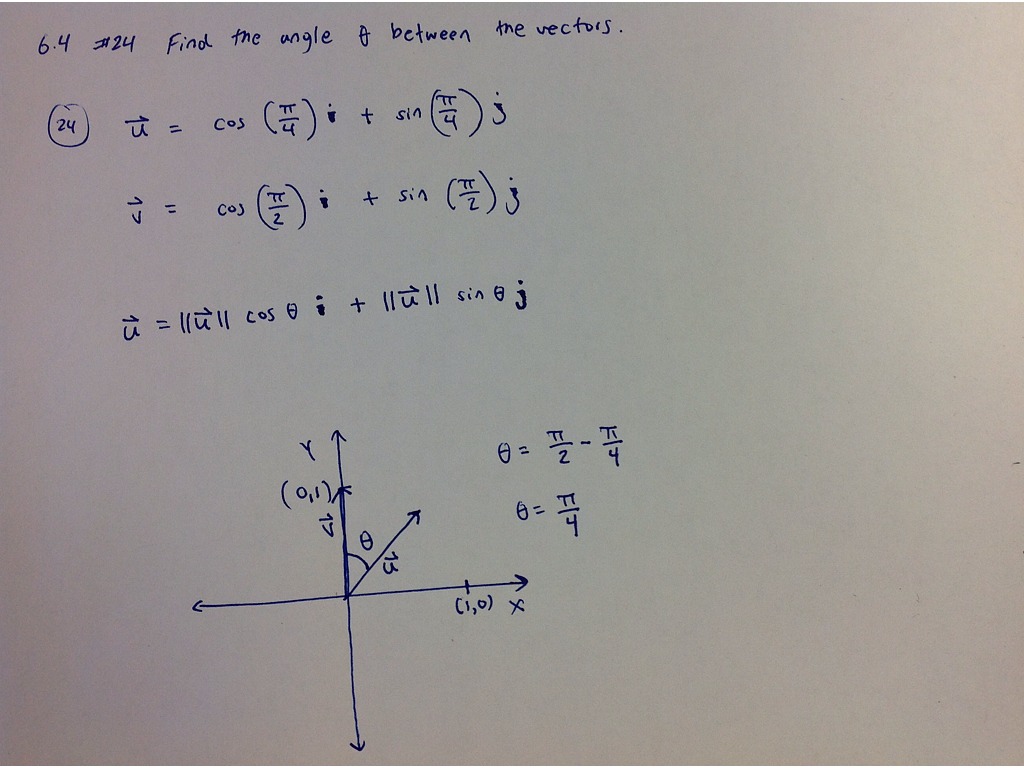 6.4 #24 Find the angle θ between the vectors.
24 u⃗ = cos (π/4) i + sin (π/4) j
v⃗ = cos (π/2) i + sin (π/2) j
u⃗ = ||u⃗|| cos θ i + ||u⃗|| sin θ j
Y
θ = π/2 - π/4
(0,1)
v⃗
θ = π/4
θ
u⃗
(1,0) X